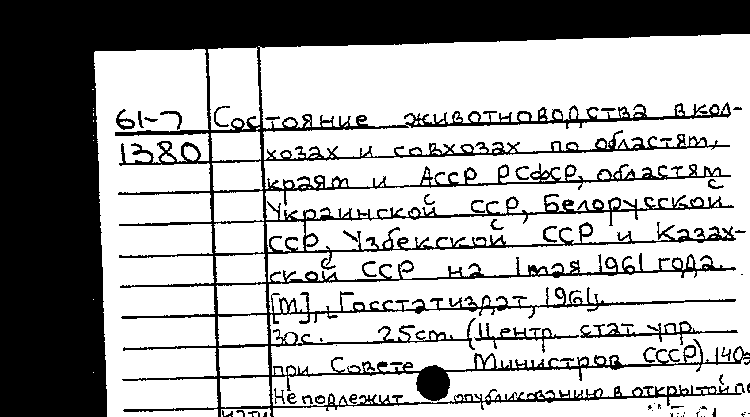 61-7 Состояние животноводства в кол-
1380 хозах и совхозах по областям,
краям и АССР РСФСР, областям
Украинской ССР, Белорусской
ССР, Узбекской ССР и Казах-
ской ССР на 1 мая 1961 года.
[М.], Госстатиздат, 1961.
30с. 25см. (Центр. стат. упр.
при Совете Министров СССР). 140э
Не подлежит опубликованию в открытой пе